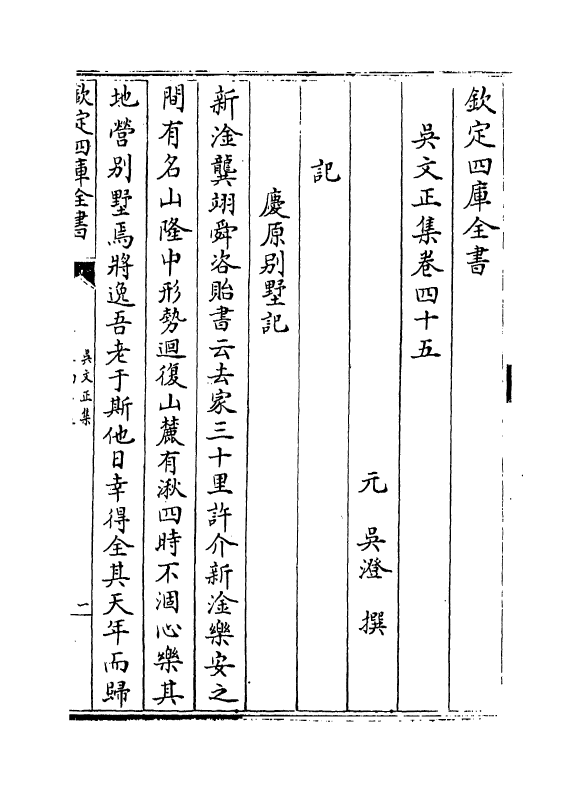 欽定四庫全書
吳文正集卷四十五
元 吳澄 撰
記
慶原别墅記
新淦龔翊舜咨貽書云去家三十里許介新淦樂安之
間有名山隆中形勢迴復山麓有湫四時不涸心樂其
地營别墅焉將逸吾老于斯他日幸得全其天年而歸
欽定四庫全書
吳文正集